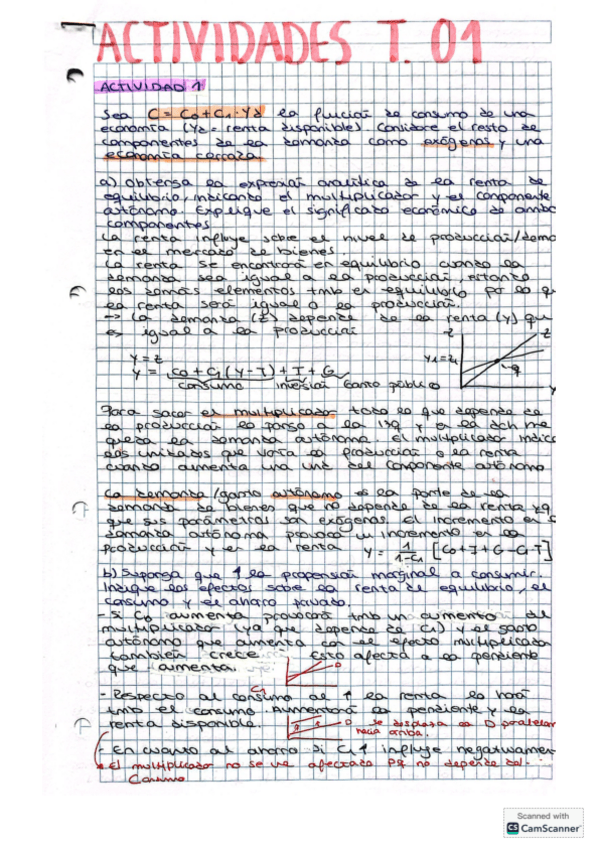 ACTIVIDADES T. 01
ACTIVIDAD 1
Sea C = C0 + C1 · Yd la función de consumo de una
economía (Yd = renta disponible). Considere el resto de
componentes de la demanda como exógenas y una
economía cerrada
a) Obtenga la expresión analítica de la renta de
equilibrio, indicando el multiplicador y el componente
autónomo. Explique el significado económico de ambos
componentes.
La renta influye sobre el nivel de producción/dema
en el mercado de bienes
La renta se encontrará en equilibrio cuando la
demanda sea igual a la producción, estando
los demás elementos tmb en equilibrio por lo q
la renta será igual a la producción.
-> La demanda (Z) depende de la renta (Y) que
es igual a la producción
Z
Z
Y1=Z1
Y
Y = Z
Y = C0 + C1 (Y-T) + I + G
consumo inversión Gasto público
Para sacar el multiplicador todo lo que depende de
la producción lo paso a la izq y en la dch me
queda la demanda autónoma. El multiplicador indica
las unidades que varía la producción o la renta
cuando aumenta una und del componente autónomo
La demanda/gasto autónomo es la parte de la
demanda de bienes que no depende de la renta xq
que sus parámetros son exógenos. El incremento en
demanda autónoma provoca un incremento en la
producción y en la renta Y = 1/1-C1 [C0+I+G-C1T]
b) Suponga que ↑ la propensión marginal a consumir.
Indique los efectos sobre la renta de equilibrio, el
consumo y el ahorro privado.
- Si C0 aumenta provocará tmb un aumento del
multiplicador (ya que depende de C1) y el gasto
autónomo que aumenta con el efecto multiplicador
también crece. Esto afecta a la pendiente
que aumenta.
C1
- Respecto al consumo al ↑ la renta lo hará
tmb el consumo. Aumentará la pendiente y la
renta disponible. D se desplaza la D paralelam
hacia arriba.
- En cuanto al ahorro si C1↑ influye negativamen
* El multiplicador no se ve afectado PQ no depende del
Consumo
Scanned with
CS CamScanner